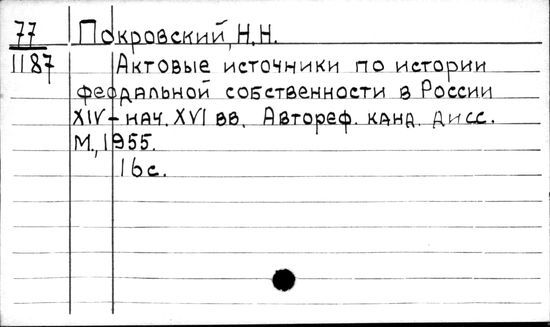 77 Покровский, Н.Н.
1187 Актовые источники по истории
феодальной собственности в России
XIV – нач. XVI вв. Автореф. канд. дисс.
М., 1955.
16с.